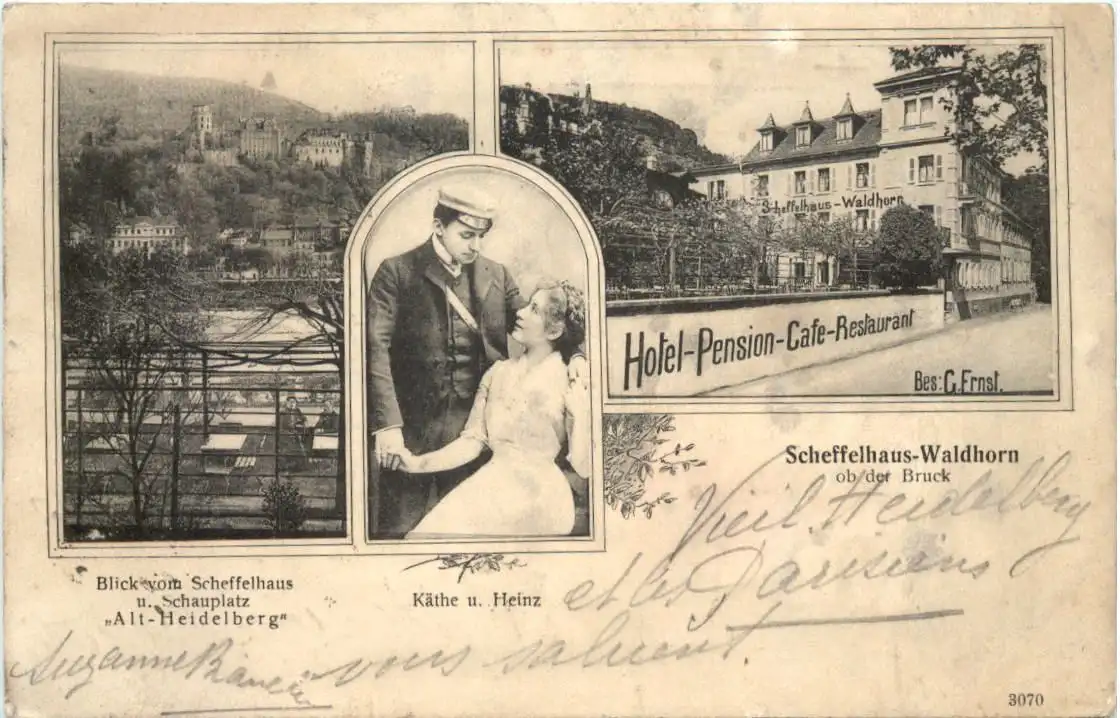 Scheffelhaus-Waldhorn
Hotel-Pension-Cafe-Restaurant
Bes: G. Ernst.
Scheffelhaus-Waldhorn
ob der Bruck
Blick vom Scheffelhaus
u. Schauplatz
„Alt-Heidelberg“
Käthe u. Heinz
Vieil Heidelberg
et les Parisiens
vous saluent.
Suzanne
3070